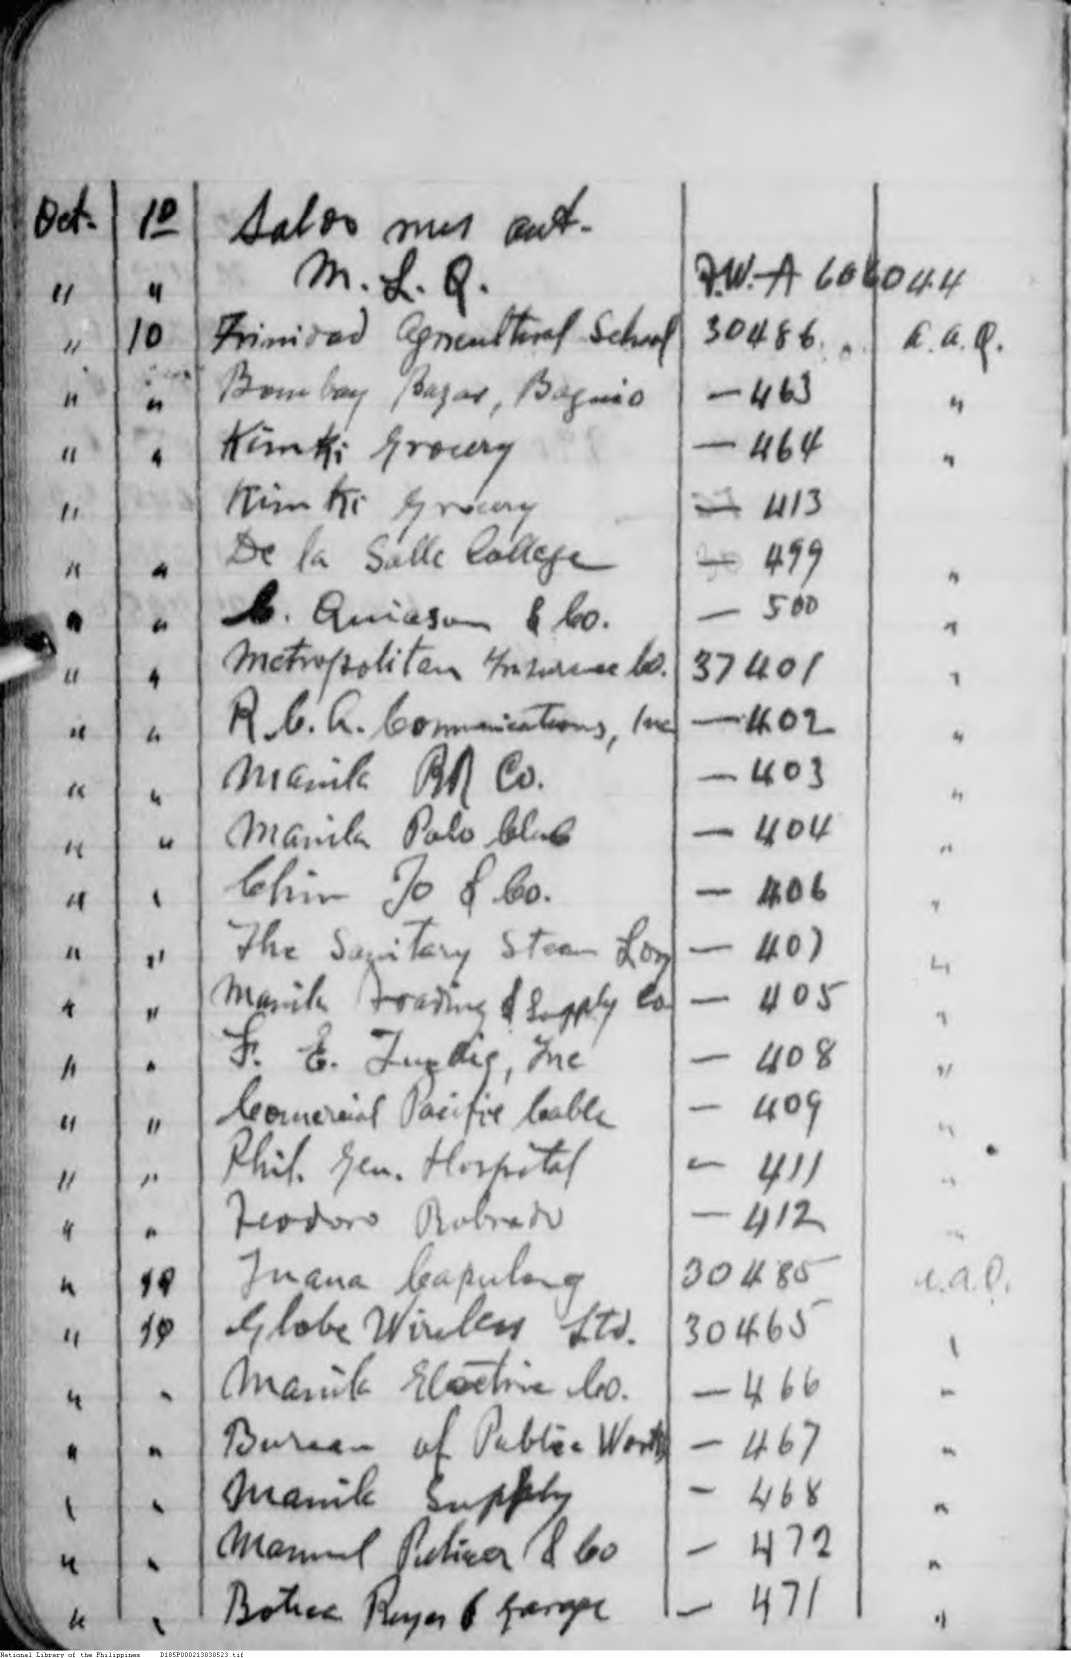 Oct. 10 Saldo mes ant.
" " M. L. Q. P.W.-A 606044
" 10 Trinidad Agricultural School 30486 a.a.Q.
" " Bombay Bazar, Baguio — 463 "
" " Kim Ki Grocery — 464 "
" Kim Ki Grocery — 413
" " De la Salle College — 499 "
" " C. Quiason & Co. — 500 "
" " Metropolitan Insurance Co. 37401 "
" " R.C.A. Communications, Inc — 402 "
" " Manila RR Co. — 403 "
" " Manila Polo Club — 404 "
" " Chin Jo & Co. — 406 "
" " The Sanitary Steam Ldry — 407 "
" " Manila Trading & Supply Co. — 405 "
" " F. E. Zuellig, Inc — 408 "
" " Comercial Pacific Cable — 409 "
" " Phil. Gen. Hospital — 411 "
" " Teodoro Robrado — 412 "
" 10 Juana Capulong 30485 a.a.Q.
" 10 Globe Wireless Ltd. 30465 "
" " Manila Electric Co. — 466 "
" " Bureau of Public Works — 467 "
" " Manila Supply — 468 "
" " Manuel Pellicer & Co — 472 "
" " Botica Reyes & garage — 471 "
National Library of the Philippines D185P000213838523.tif